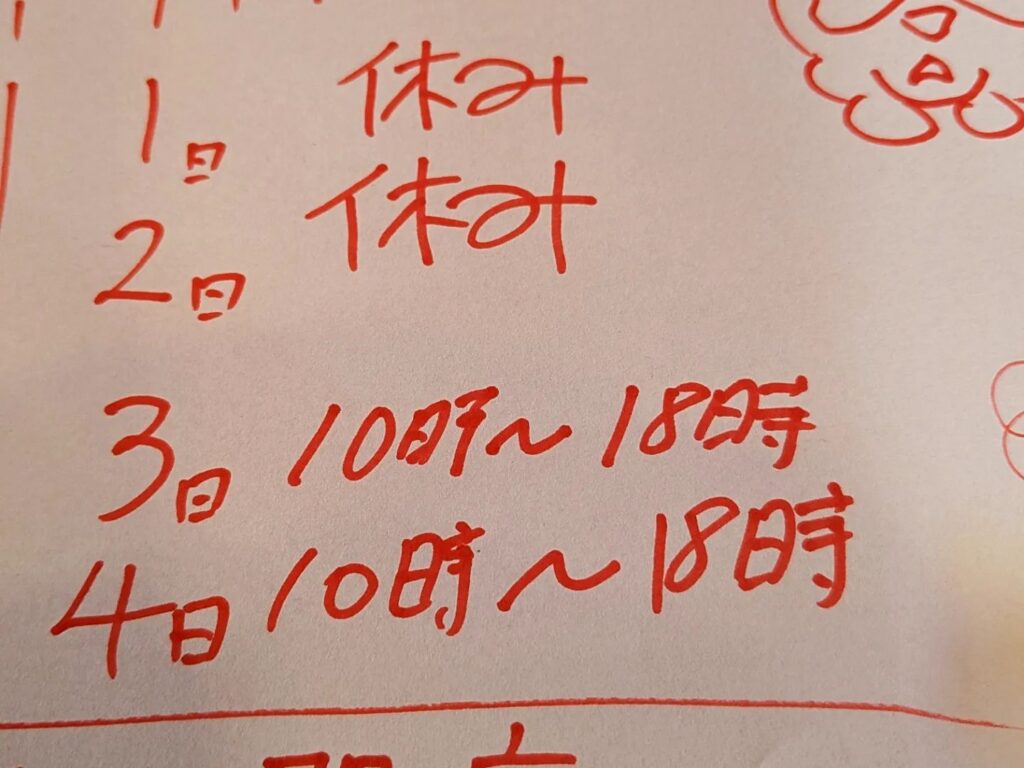 1日 休み
2日 休み
3日 10時～18時
4日 10時～18時